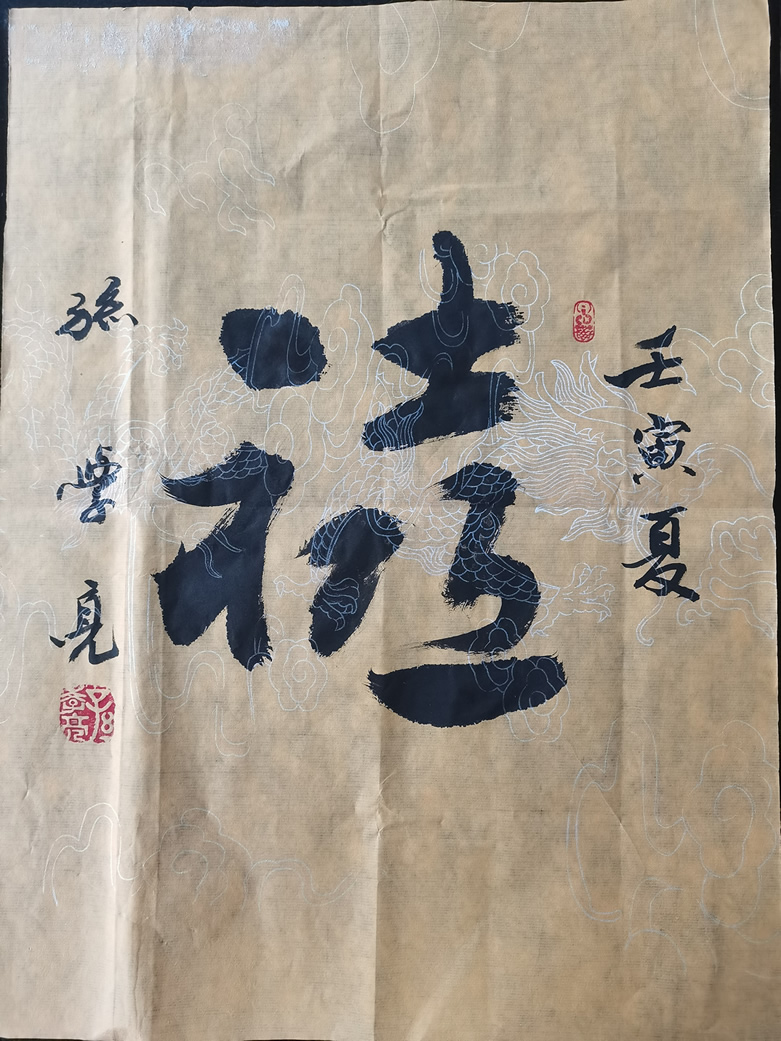 壬寅夏
禧
孫學亮